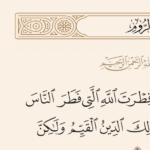 الرُّومِ
ٱللَّهِ ٱلرَّحْمَٰنِ ٱلرَّحِيمِ
فِطْرَتَ ٱللَّهِ ٱلَّتِي فَطَرَ ٱلنَّاسَ
لِكَ ٱلدِّينُ ٱلْقَيِّمُ وَلَٰكِنَّ